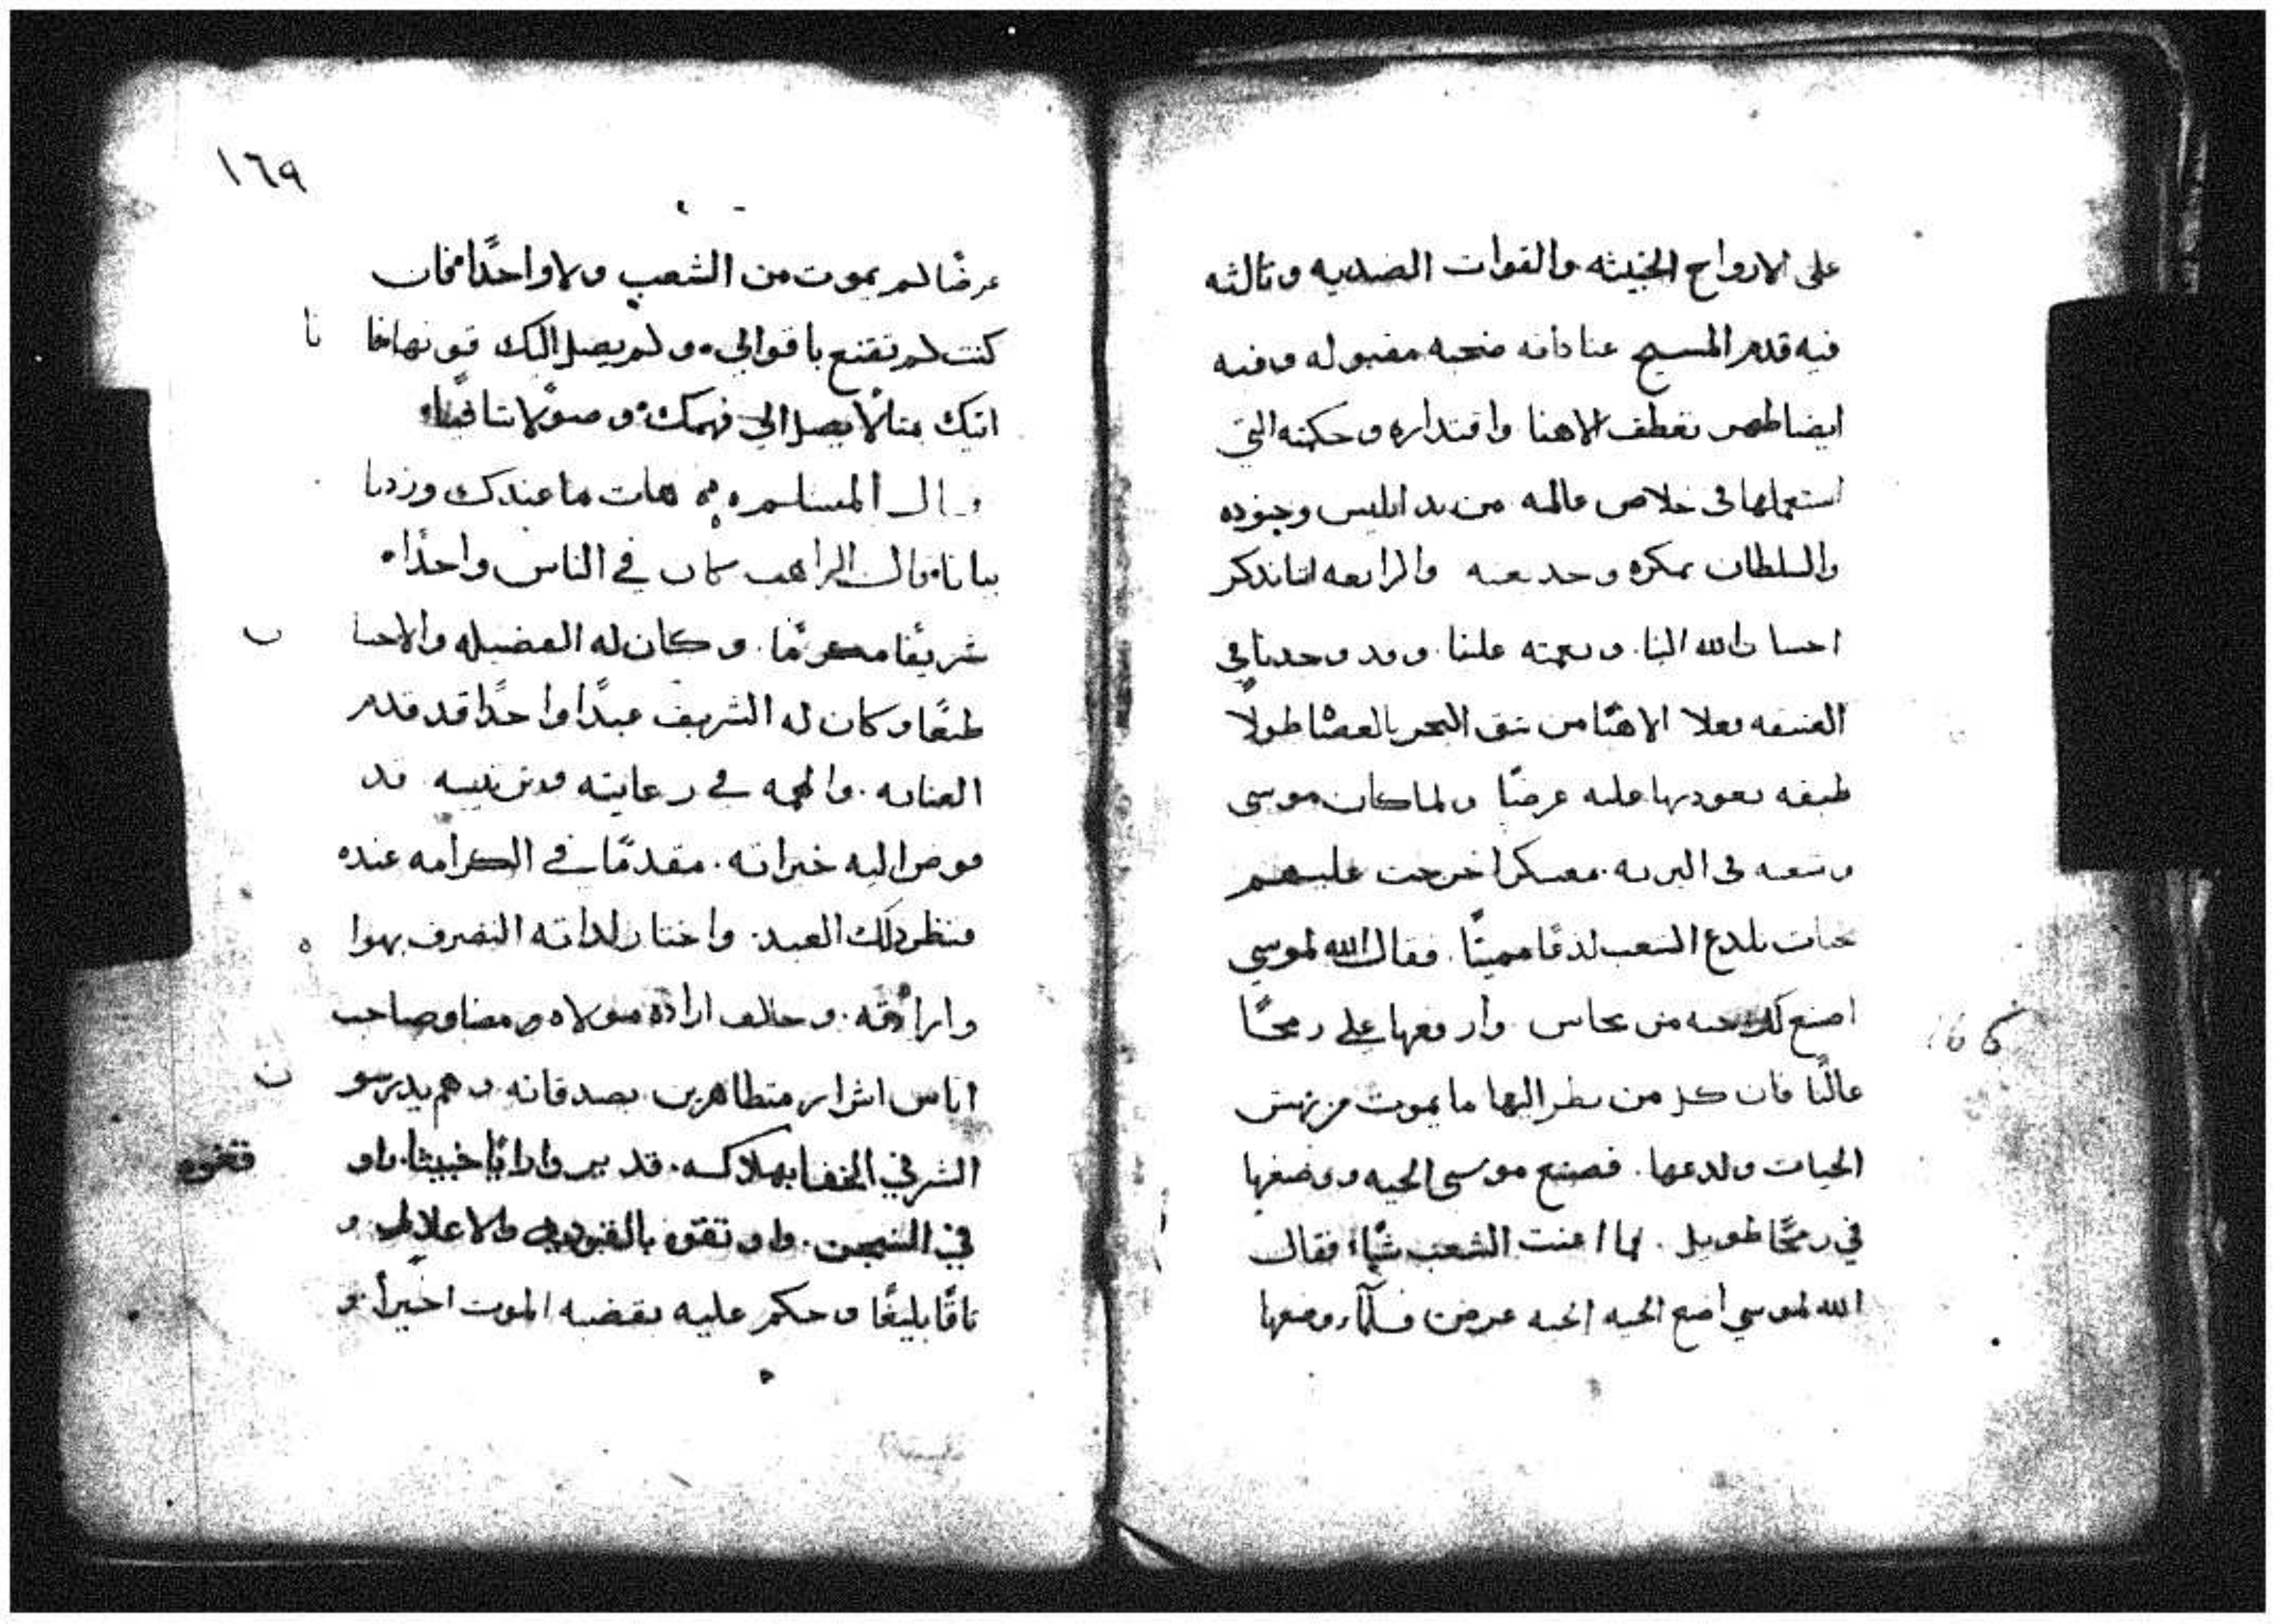 على الارواح الخبيثه والقوات الضديه وثالثه
فيه قدم المسيح عنا ذاته ضحيه مقبوله وفيه
ايضا ظهر تعطف الاهنا واقتداره وحكمته التي
استعملها في خلاص عالمه من يد ابليس وجنوده
والسلطان بمكره وخديعته والرابعه اننا نذكر
احسان الله الينا ونعمته علينا وقد وجدنا في
العتيقه فعلا الاهنا من شق البحر بالعصا طولاً
طبقه بعود بها عليه عرضًا ولما كان موسى
وشعبه في البريه معسكرا خرجت عليهم
حيات تلدغ الشعب لدغا مميتًا فقال الله لموسي
اصنع لك حيه من نحاس وارفعها على رمحًا
عاليًا فان كل من نظر اليها ما يموت من نهش
الحيات ولدغها فصنع موسى الحيه ووضعها
في رمحًا طويل فما اغنت الشعب شيًا فقال
الله لموسي اضع الحيه عرض فلما وضعها
١٦٩
عرضًا لم يموت من الشعب ولا واحدًا فان
كنت لم تقتنع باقوالي ولم يصل اليك قوتها فانا
اتيك مثالًا يصل الي فهمك
قال المسلم هات ما عندك وزدنا
بيانا قال الراهب كان في الناس واحدًا
شريفًا مكرمًا وكان له الفضيله والاحسان
طبعًا وكان له الشريف عبدًا واحدًا قد قدم
العنايه والمحبه في رعايته وتربيته قد
فوض اليه خيراته مقدمًا في الكرامه عنده
فنظر ذلك العبد واختار لذاته التصرف بهواه
وارادته وخلاف ارادة مولاه ومضا وصاحب
اناس اشرار متظاهرين بصدقاته وهم يدرسون
الشر في الخفا بهلاكه قد بير وارايًا خبيثا
في السجن بالقيود والاغلال و
ثاقًا بليغًا وحكم عليه بقضيه الموت اخيرا و